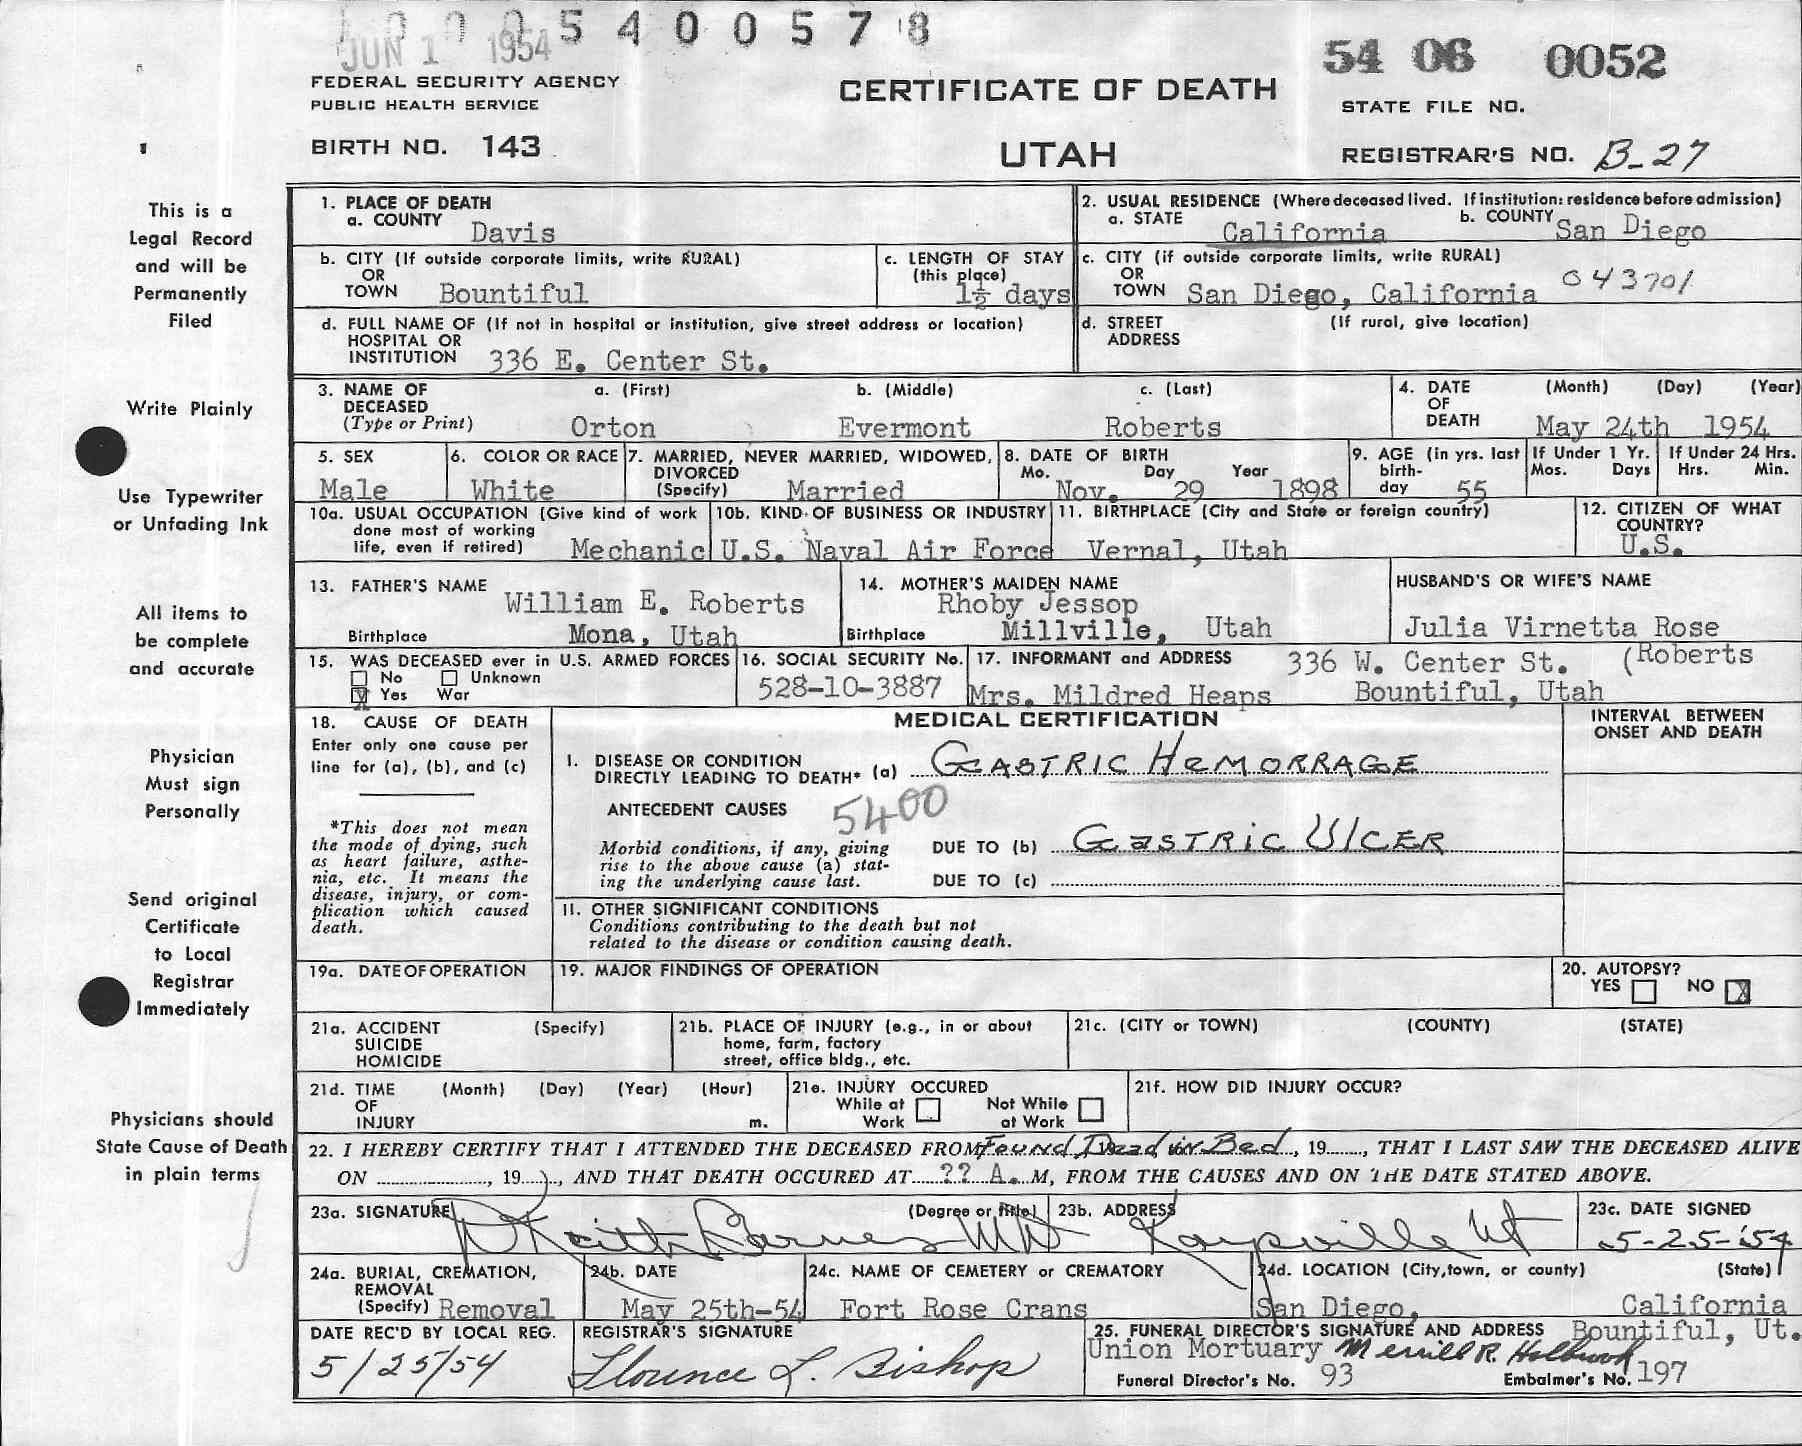 10005400578
JUN 1 1954
54 06 0052
FEDERAL SECURITY AGENCY
PUBLIC HEALTH SERVICE
CERTIFICATE OF DEATH
STATE FILE NO.
BIRTH NO. 143
UTAH
REGISTRAR'S NO. B-27
This is a
Legal Record
and will be
Permanently
Filed
Write Plainly
Use Typewriter
or Unfading Ink
All items to
be complete
and accurate
Physician
Must sign
Personally
Send original
Certificate
to Local
Registrar
Immediately
Physicians should
State Cause of Death
in plain terms
1. PLACE OF DEATH
a. COUNTY Davis
2. USUAL RESIDENCE (Where deceased lived. If institution: residence before admission)
a. STATE California b. COUNTY San Diego
b. CITY (If outside corporate limits, write RURAL)
OR
TOWN Bountiful
c. LENGTH OF STAY
(this place)
1½ days
c. CITY (if outside corporate limits, write RURAL)
OR
TOWN San Diego, California 043701
d. FULL NAME OF (If not in hospital or institution, give street address or location)
HOSPITAL OR
INSTITUTION 336 E. Center St.
d. STREET (If rural, give location)
ADDRESS
3. NAME OF a. (First) b. (Middle) c. (Last)
DECEASED
(Type or Print) Orton Evermont Roberts
4. DATE (Month) (Day) (Year)
OF
DEATH May 24th 1954
5. SEX
Male
6. COLOR OR RACE
White
7. MARRIED, NEVER MARRIED, WIDOWED,
DIVORCED
(Specify) Married
8. DATE OF BIRTH
Mo. Day Year
Nov. 29 1898
9. AGE (in yrs. last
birth-
day 55
If Under 1 Yr.
Mos. Days
If Under 24 Hrs.
Hrs. Min.
10a. USUAL OCCUPATION (Give kind of work
done most of working
life, even if retired) Mechanic
10b. KIND OF BUSINESS OR INDUSTRY
U.S. Naval Air Force
11. BIRTHPLACE (City and State or foreign country)
Vernal, Utah
12. CITIZEN OF WHAT
COUNTRY?
U.S.
13. FATHER'S NAME
William E. Roberts
Birthplace Mona, Utah
14. MOTHER'S MAIDEN NAME
Rhoby Jessop
Birthplace Millville, Utah
HUSBAND'S OR WIFE'S NAME
Julia Virnetta Rose
(Roberts
15. WAS DECEASED ever in U.S. ARMED FORCES
No Unknown
X Yes War
16. SOCIAL SECURITY No.
528-10-3887
17. INFORMANT and ADDRESS 336 W. Center St.
Mrs. Mildred Heaps Bountiful, Utah
18. CAUSE OF DEATH
Enter only one cause per
line for (a), (b), and (c)
*This does not mean
the mode of dying, such
as heart failure, asthe-
nia, etc. It means the
disease, injury, or com-
plication which caused
death.
MEDICAL CERTIFICATION
INTERVAL BETWEEN
ONSET AND DEATH
I. DISEASE OR CONDITION
DIRECTLY LEADING TO DEATH* (a) GASTRIC HEMORRAGE
ANTECEDENT CAUSES 5400
Morbid conditions, if any, giving
rise to the above cause (a) stat-
ing the underlying cause last.
DUE TO (b) GASTRIC ULCER
DUE TO (c)
II. OTHER SIGNIFICANT CONDITIONS
Conditions contributing to the death but not
related to the disease or condition causing death.
19a. DATE OF OPERATION
19. MAJOR FINDINGS OF OPERATION
20. AUTOPSY?
YES NO X
21a. ACCIDENT (Specify)
SUICIDE
HOMICIDE
21b. PLACE OF INJURY (e.g., in or about
home, farm, factory
street, office bldg., etc.
21c. (CITY or TOWN) (COUNTY) (STATE)
21d. TIME (Month) (Day) (Year) (Hour)
OF
INJURY m.
21e. INJURY OCCURED
While at Work
Not While at Work
21f. HOW DID INJURY OCCUR?
22. I HEREBY CERTIFY THAT I ATTENDED THE DECEASED FROM Found Dead in Bed, 19......, THAT I LAST SAW THE DECEASED ALIVE
ON ..................., 19......, AND THAT DEATH OCCURED AT ?? A. M, FROM THE CAUSES AND ON THE DATE STATED ABOVE.
23a. SIGNATURE (Degree or title)
Keith Barnes MD
23b. ADDRESS
Kaysville Ut
23c. DATE SIGNED
5-25-'54
24a. BURIAL, CREMATION,
REMOVAL
(Specify) Removal
24b. DATE
May 25th-54
24c. NAME OF CEMETERY or CREMATORY
Fort Rose Crans
24d. LOCATION (City, town, or county) (State)
San Diego, California
DATE REC'D BY LOCAL REG.
5/25/54
REGISTRAR'S SIGNATURE
Florence L. Bishop
25. FUNERAL DIRECTOR'S SIGNATURE AND ADDRESS Bountiful, Ut.
Union Mortuary Merrill R. Holbrook
Funeral Director's No. 93 Embalmer's No. 197